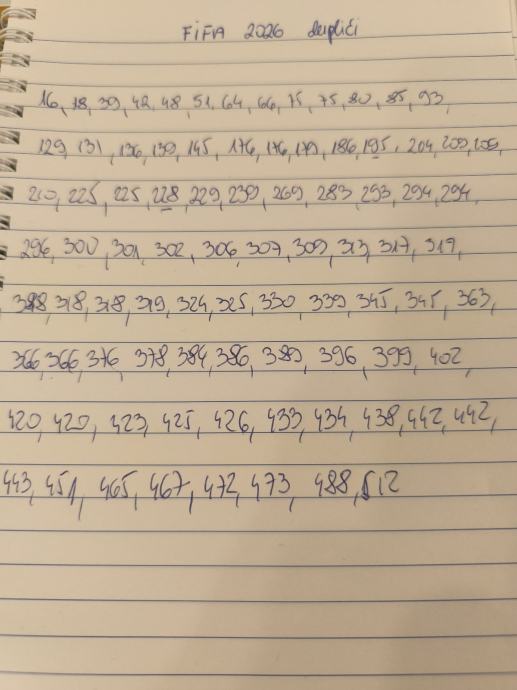 FIFA 2026 duplići
16, 18, 39, 42, 48, 51, 64, 66, 75, 75, 80, 85, 93,
129, 131, 136, 139, 145, 176, 176, 179, 186, 195, 204, 209, 209,
210, 225, 225, 228, 229, 239, 269, 283, 293, 294, 294,
296, 300, 301, 302, 306, 307, 309, 313, 317, 317,
318, 318, 318, 319, 324, 325, 330, 339, 345, 345, 363,
366, 366, 376, 378, 384, 386, 389, 396, 399, 402,
420, 420, 423, 425, 426, 433, 434, 438, 442, 442,
443, 451, 465, 467, 472, 473, 488, 512